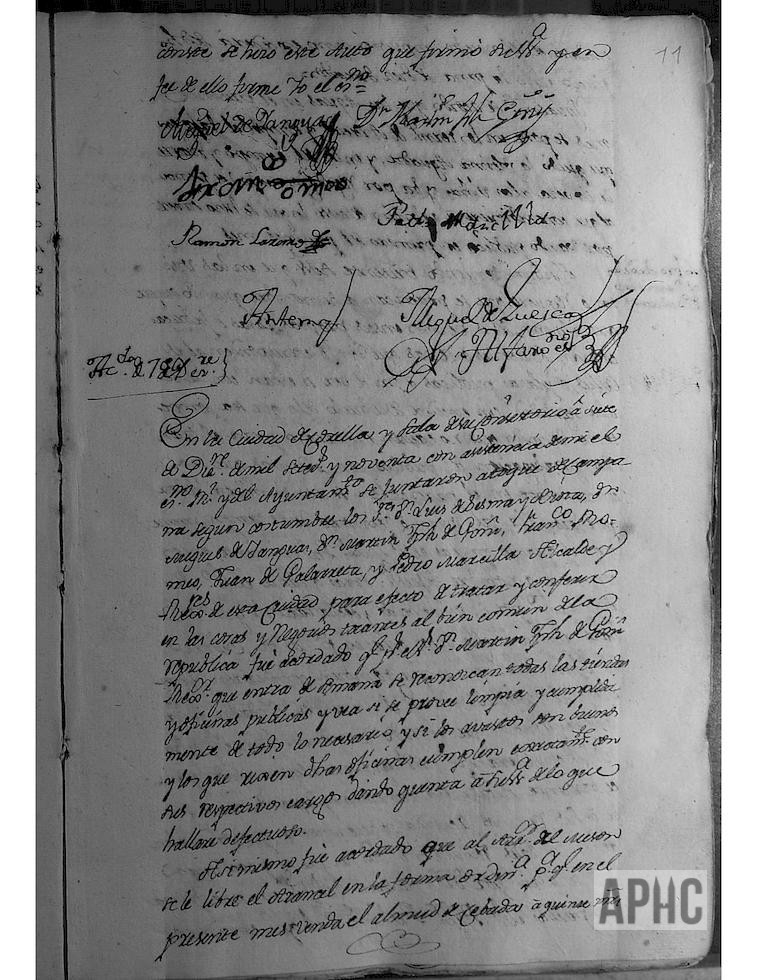 11
conste se hizo este Auto que firmó su Sª y en
fee de ello firme Yo el esno=
Miguel de Zangua Dn Martin Jph Goñi
Pedro Marcilla
Ramon Lazaro
Antemi
Miguel de Huesca
y Alfaro esno
Acdo de 7 de Dere
En la Ciudad de Corella y Sala de su Consistorio a siete
de Dizre de mil setezs y noventa con asistencia de mi el
esno Rl y del Ayuntamto se Juntaron a toque de Campa
na segun costumbre los Sres Dn Luis de Sesma y dn
Miguel de Zangua, Dn Martin Jph de Goñi, Franco Ro-
meo, Juan de Galarreta, y Pedro Marcilla Alcalde y
Rexres de esta Ciudad para efecto de tratar y conferir
en las cosas y Negocios tocantes al bien comun de la
republica fue acordado qe pr el Sr Dn Martin Jph de Goñi
Rexor que entra de semana se reconozcan todas las tiendas
y oficinas publicas y vea si se provee limpia y cumplida
mente de todo lo necesario, y si los avastos son buenos
y los que rixen dhas oficinas cumplen exactamte con
sus respectivos cargos dando quenta a su Sª de lo que
hallare defectuoso.
Asi mismo fue acordado que al Arror del Meson
se le libre el Arancel en la forma ordina pa qe en el
presente mes venda el almud de Cebada a quince mrs
APHC